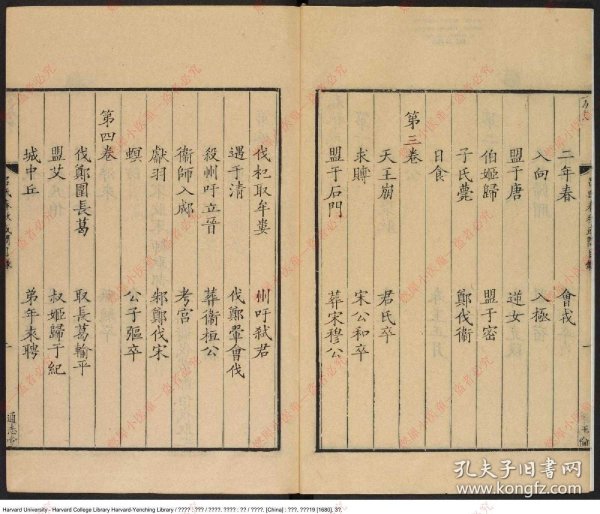 二年春 會戎
入向 入極
盟于唐 逆女
伯姬歸 盟于密
子氏薨 鄭伐衛
日食
第三卷
天王崩 君氏卒
求賻 宋公和卒
盟于石門 葬宋穆公
伐杞取牟婁 州吁弒君
遇于清 伐鄭翬會伐
殺州吁立晉 葬衛桓公
衛師入郕 考宮
獻羽 邾鄭伐宋
螟 公子彄卒
第四卷
伐鄭圍長葛 取長葛輸平
盟艾 叔姬歸于紀
城中丘 弟年來聘
通志堂
孔夫子旧书网
Harvard University - Harvard College Library Harvard-Yenching Library / ???? : ??? / ????. ???? : ?? / ????. [China] : ???, ???19 [1680], 3?.